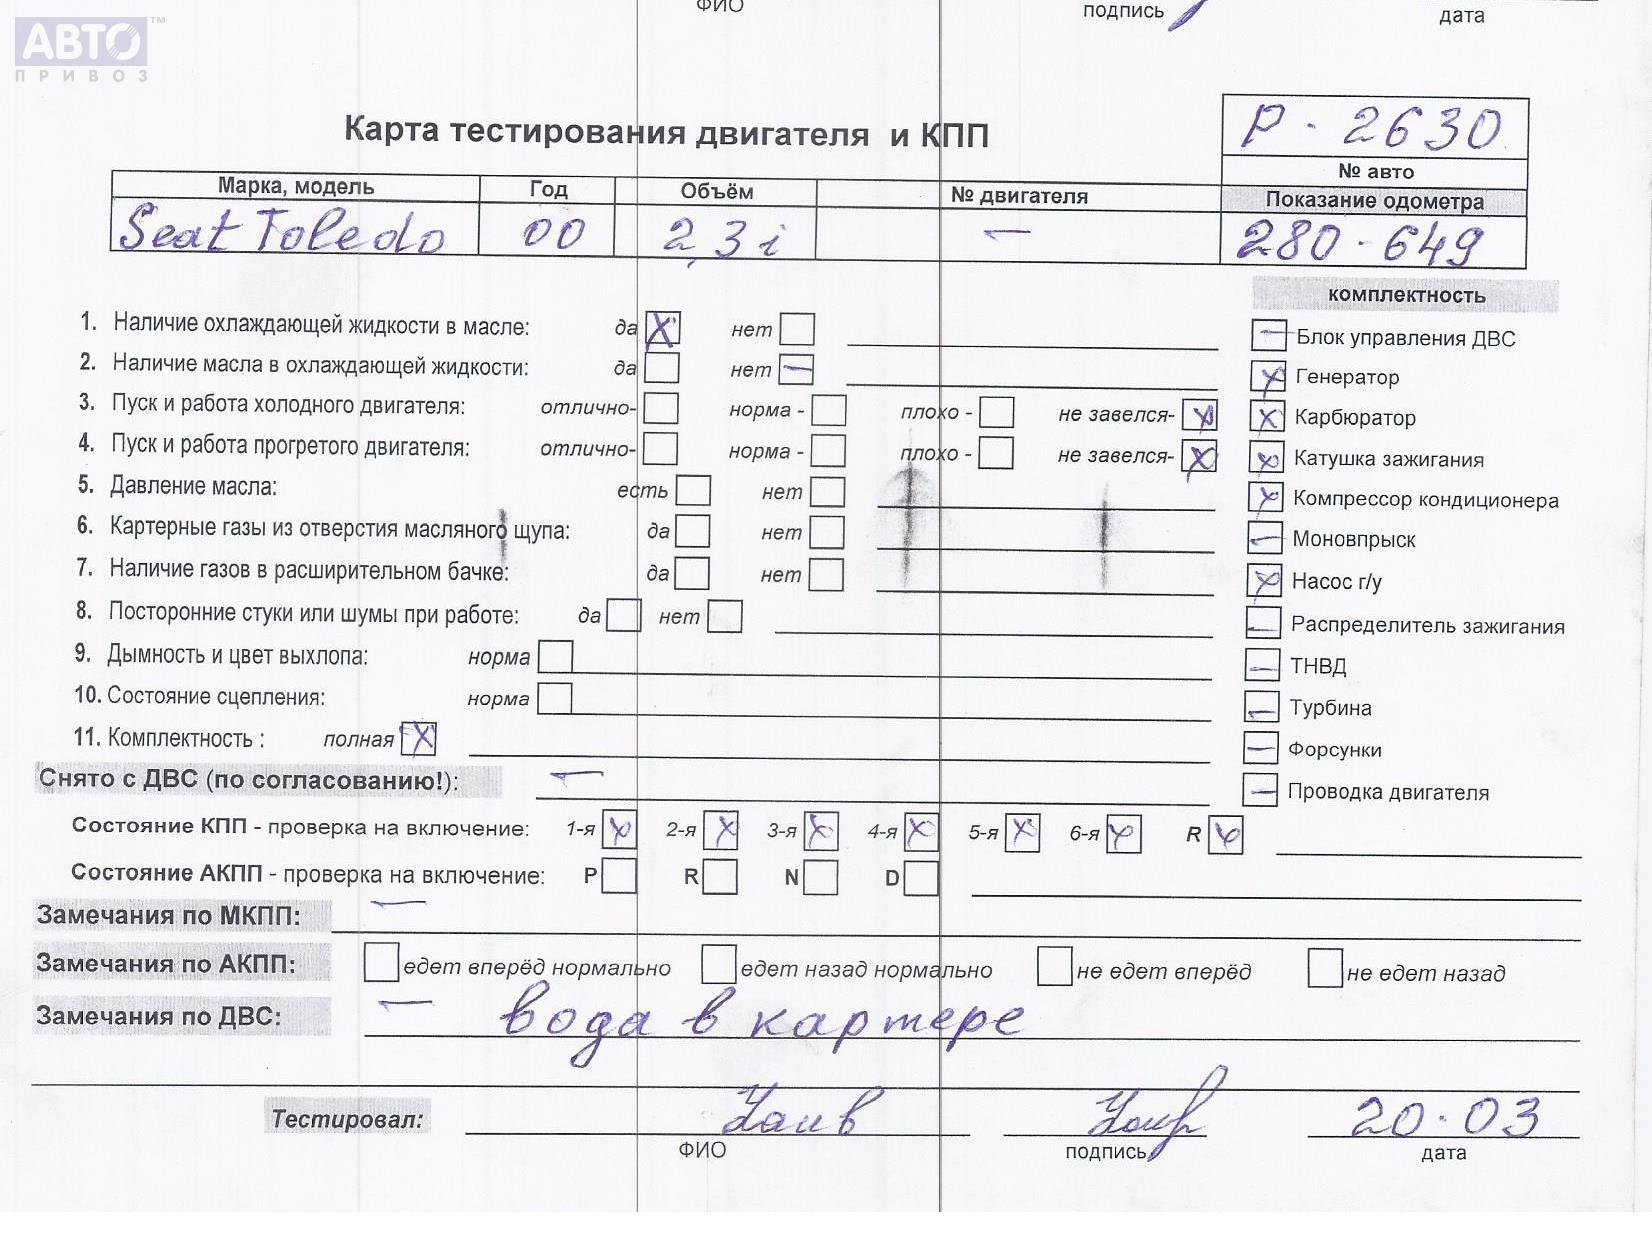 ФИО подпись дата
АВТО™
ПРИВОЗ
Карта тестирования двигателя и КПП
P - 2630
№ авто
Марка, модель Год Объём № двигателя Показание одометра
Seat Toledo 00 2,3 i — 280 - 649
комплектность
1. Наличие охлаждающей жидкости в масле: да X нет
2. Наличие масла в охлаждающей жидкости: да нет —
3. Пуск и работа холодного двигателя: отлично- норма - плохо - не завелся- X
4. Пуск и работа прогретого двигателя: отлично- норма - плохо - не завелся- X
5. Давление масла: есть нет
6. Картерные газы из отверстия масляного щупа: да нет
7. Наличие газов в расширительном бачке: да нет
8. Посторонние стуки или шумы при работе: да нет
9. Дымность и цвет выхлопа: норма
10. Состояние сцепления: норма
11. Комплектность : полная X
— Блок управления ДВС
X Генератор
X Карбюратор
X Катушка зажигания
X Компрессор кондиционера
— Моновпрыск
X Насос г/у
— Распределитель зажигания
— ТНВД
— Турбина
— Форсунки
— Проводка двигателя
Снято с ДВС (по согласованию!): —
Состояние КПП - проверка на включение: 1-я X 2-я X 3-я X 4-я X 5-я X 6-я X R X
Состояние АКПП - проверка на включение: P R N D
Замечания по МКПП: —
Замечания по АКПП: едет вперёд нормально едет назад нормально не едет вперёд не едет назад
Замечания по ДВС: — вода в картере
Тестировал: 20.03
ФИО подпись дата